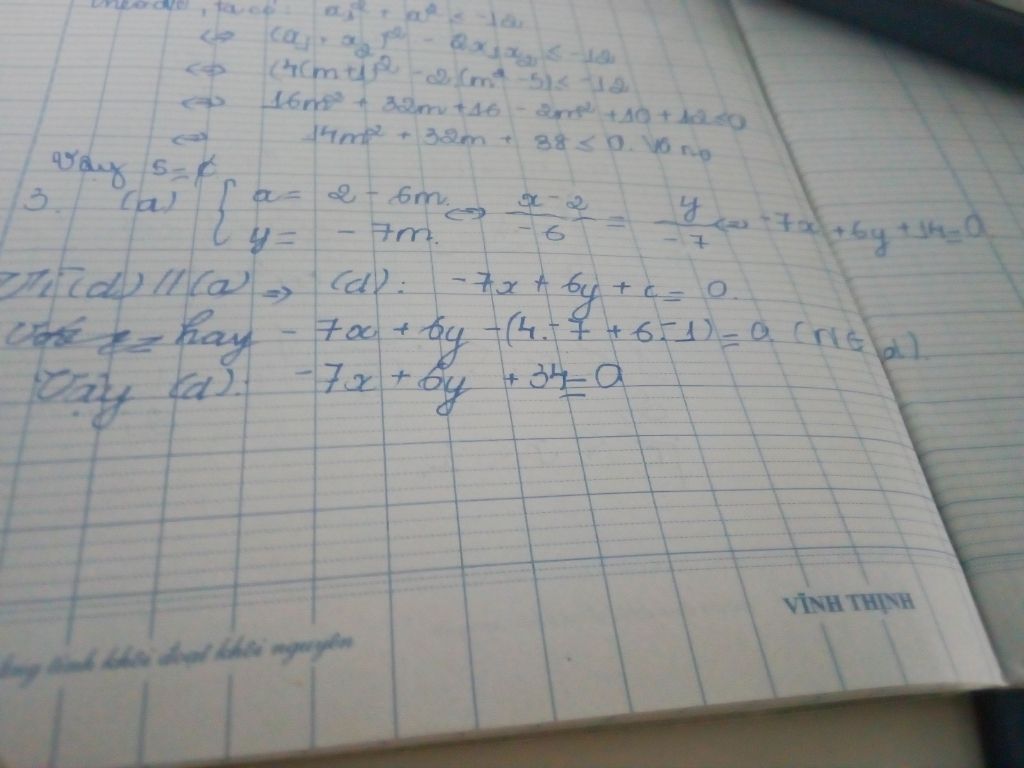 theo đề, ta có: x₁² + x₂² < -12
⇔ (x₁ + x₂)² - 2x₁x₂ < -12
⇔ (4(m+1)² - 2(m² - 5) < -12
⇔ 16m² + 32m + 16 - 2m² + 10 + 12 < 0
⇔ 14m² + 32m + 38 < 0. Vô no
Vậy S = ∅
3. (a) { x = 2 - 6m. ⇔ x - 2 / -6 = y / -7 ⇔ -7x + 6y + 14 = 0
y = - 7m.
Vì (d) // (a) ⇒ (d): -7x + 6y + c = 0.
hay - 7x + 6y - (4.-7 + 6.-1) = 0 (
Vậy (d): -7x + 6y + 34 = 0
VĨNH THỊNH
tinh khôi đoạt khôi nguyên